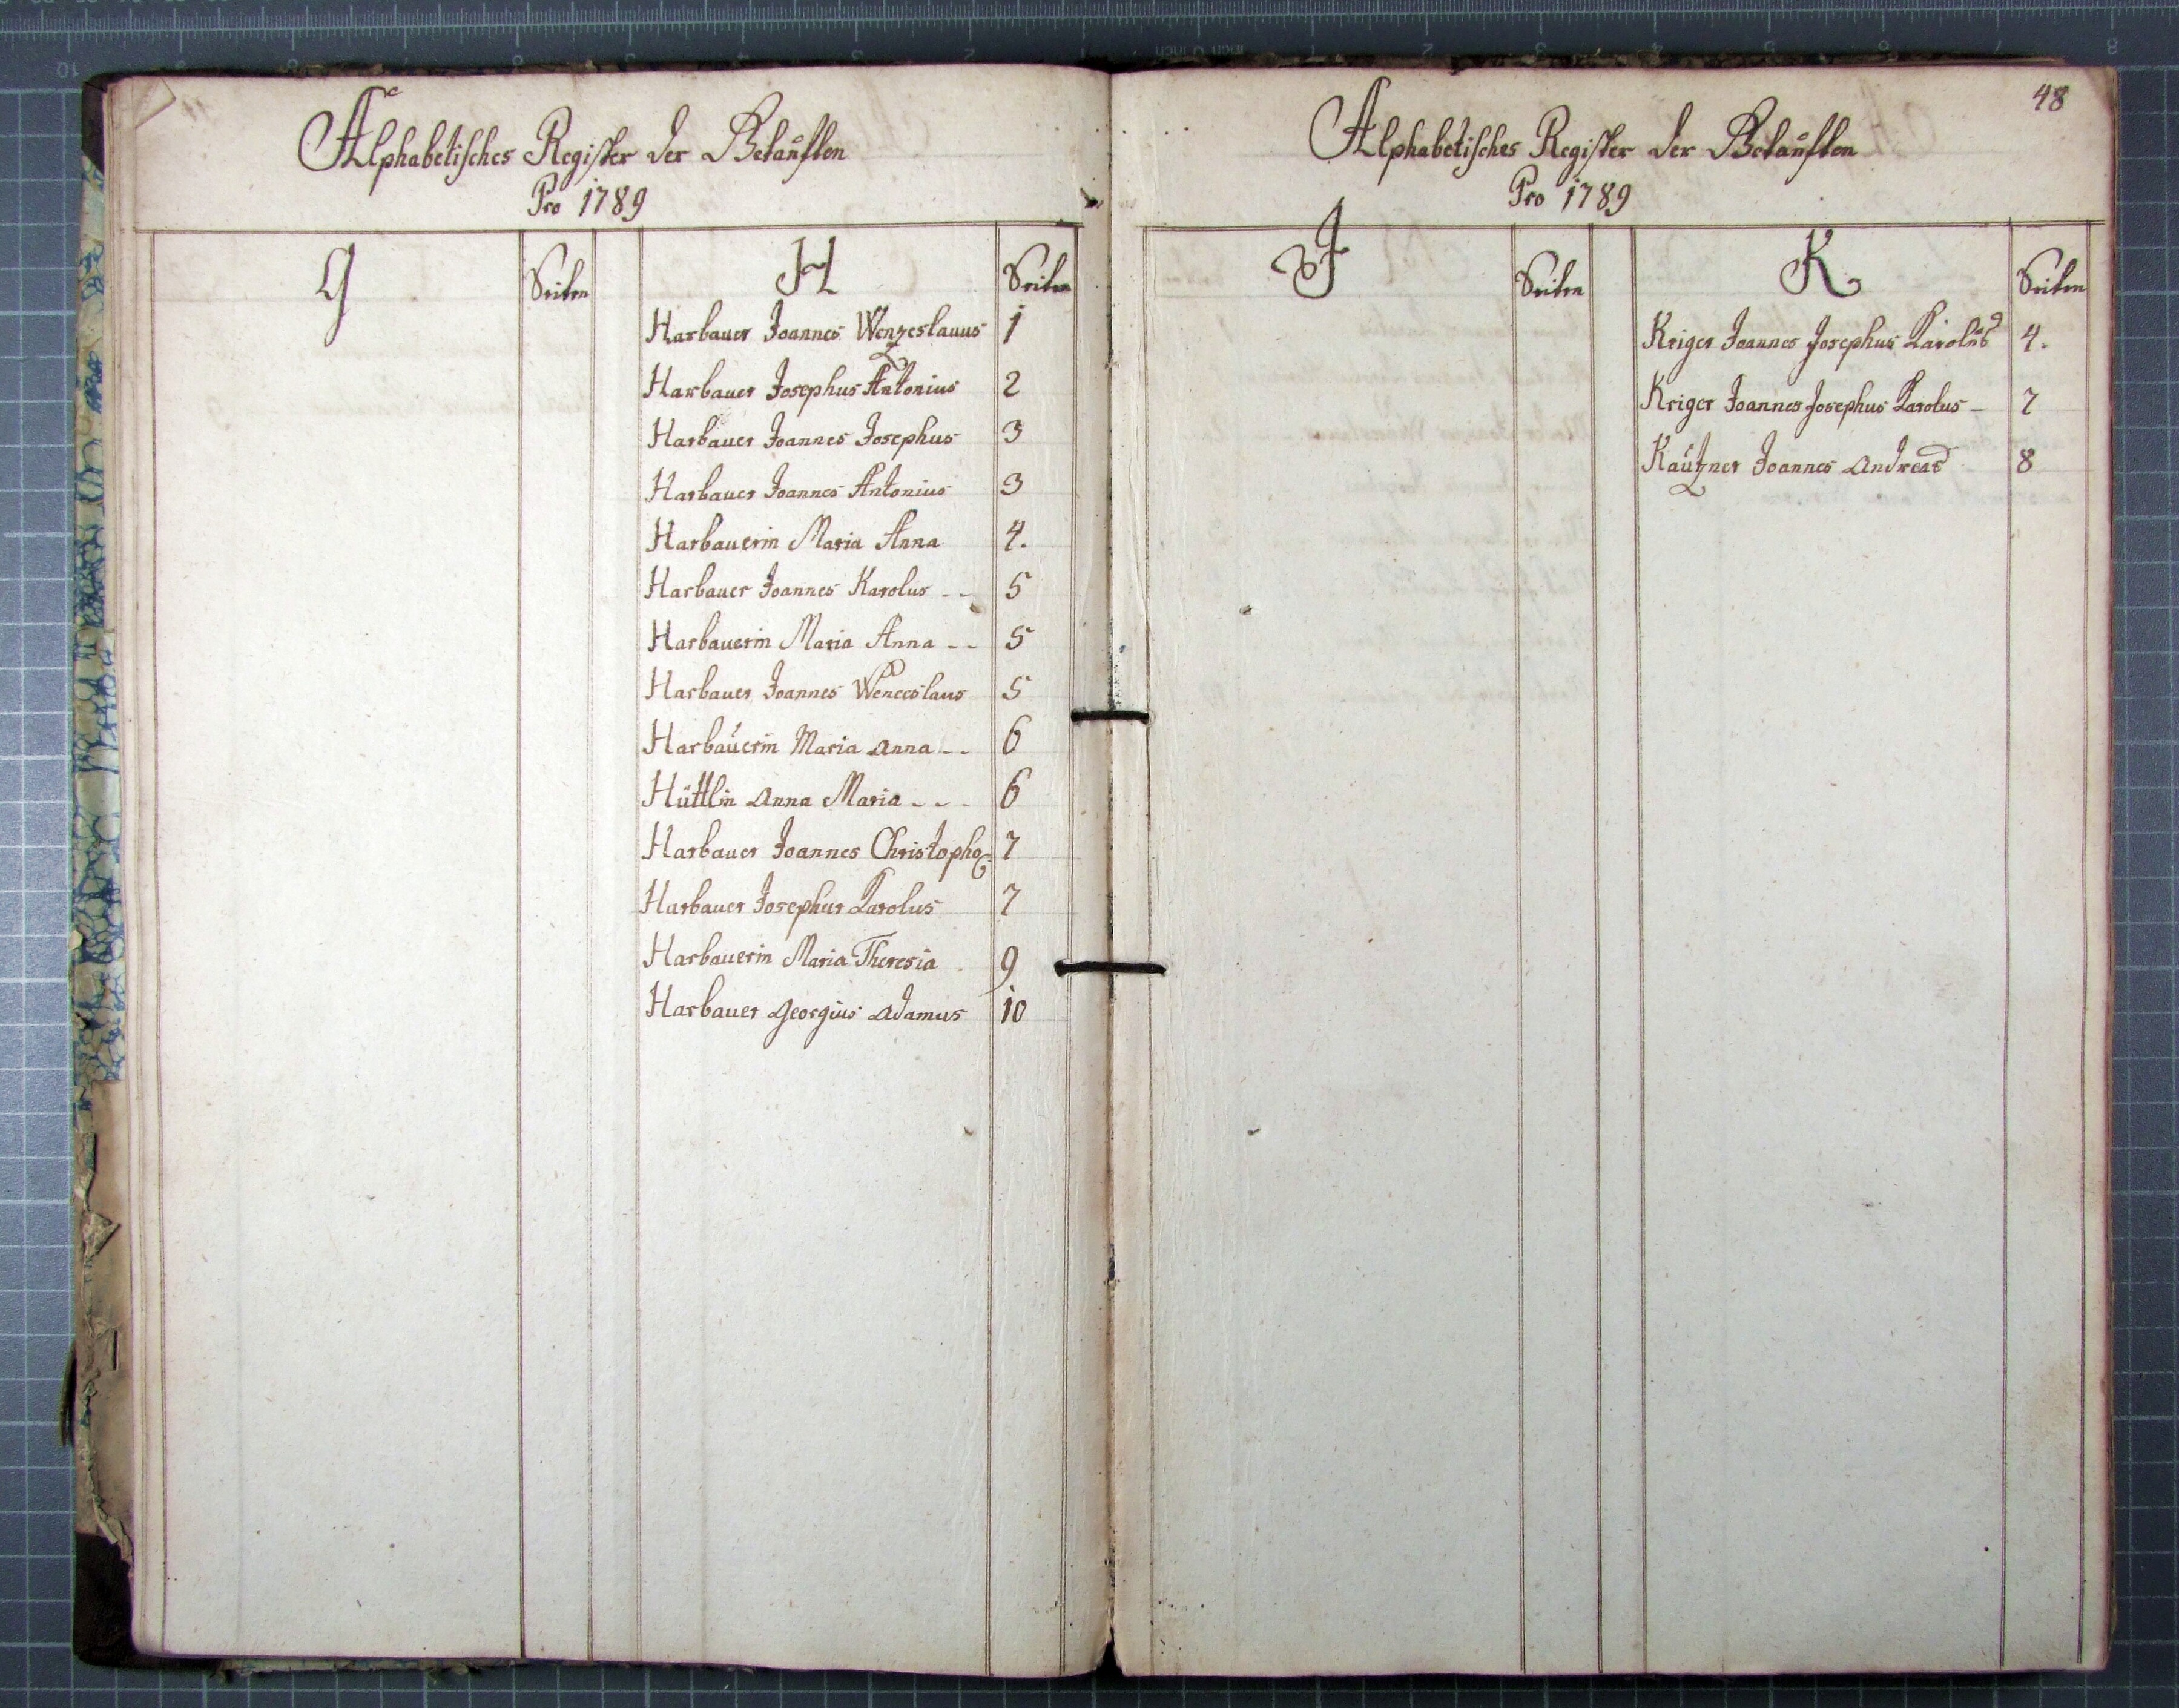 Alphabetisches Register der Betauften
Pro 1789
G Seiten H Seiten
Harbauer Joannes Wenzeslauus 1
Harbauer Josephus Antonius 2
Harbauer Joannes Josephus 3
Harbauer Joannes Antonius 3
Harbauerin Maria Anna 4.
Harbauer Joannes Karolus - - 5
Harbauerin Maria Anna - - 5
Harbauer Joannes Wenceslaus 5
Harbauerin Maria Anna - - 6
Hüttlin Anna Maria - - - 6
Harbauer Joannes Christoph9 7
Harbauer Josephus Karolus 7
Harbauerin Maria Theresia 9
Harbauer Georgius Adamus 10
48
Alphabetisches Register der Betauften
Pro 1789
J Seiten K Seiten
Kriger Joannes Josephus Karolus 4.
Kriger Joannes Josephus Karolus - 7
Kautzner Joannes Andreas 8